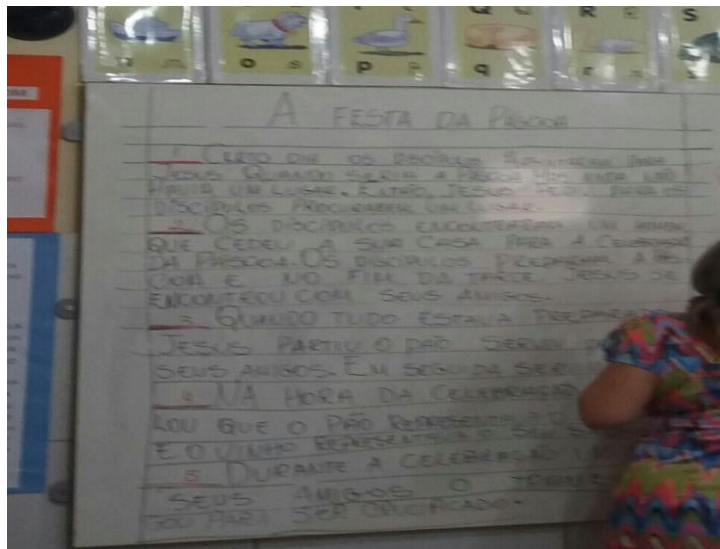 n
o
p
q
r
s
Q
R R
S
A FESTA DA PÁSCOA
1 CERTO DIA OS DISCÍPULOS PERGUNTARAM PARA
JESUS QUANDO SERIA A PÁSCOA MAS AINDA NÃO
HAVIA UM LUGAR. ENTÃO, JESUS PEDIU PARA OS
DISCÍPULOS PROCURAREM UM LUGAR.
2 OS DISCÍPULOS ENCONTRARAM UM HOMEM
QUE CEDEU A SUA CASA PARA A CELEBRAÇÃO
DA PÁSCOA. OS DISCÍPULOS PREPARAM A PÁS
COA E NO FIM DA TARDE JESUS SE
ENCONTROU COM SEUS AMIGOS.
3 QUANDO TUDO ESTAVA PREPARA
JESUS PARTIU O PÃO SERVIU
SEUS AMIGOS. EM SEGUIDA SER
4 NA HORA DA CELEBRAÇÃO
LOU QUE O PÃO REPRESENTA
E O VINHO REPRESENTAVA O SEU
5 DURANTE A CELEBRAÇÃO UM
SEUS AMIGOS O
PARA SER CRUCIFICADO.